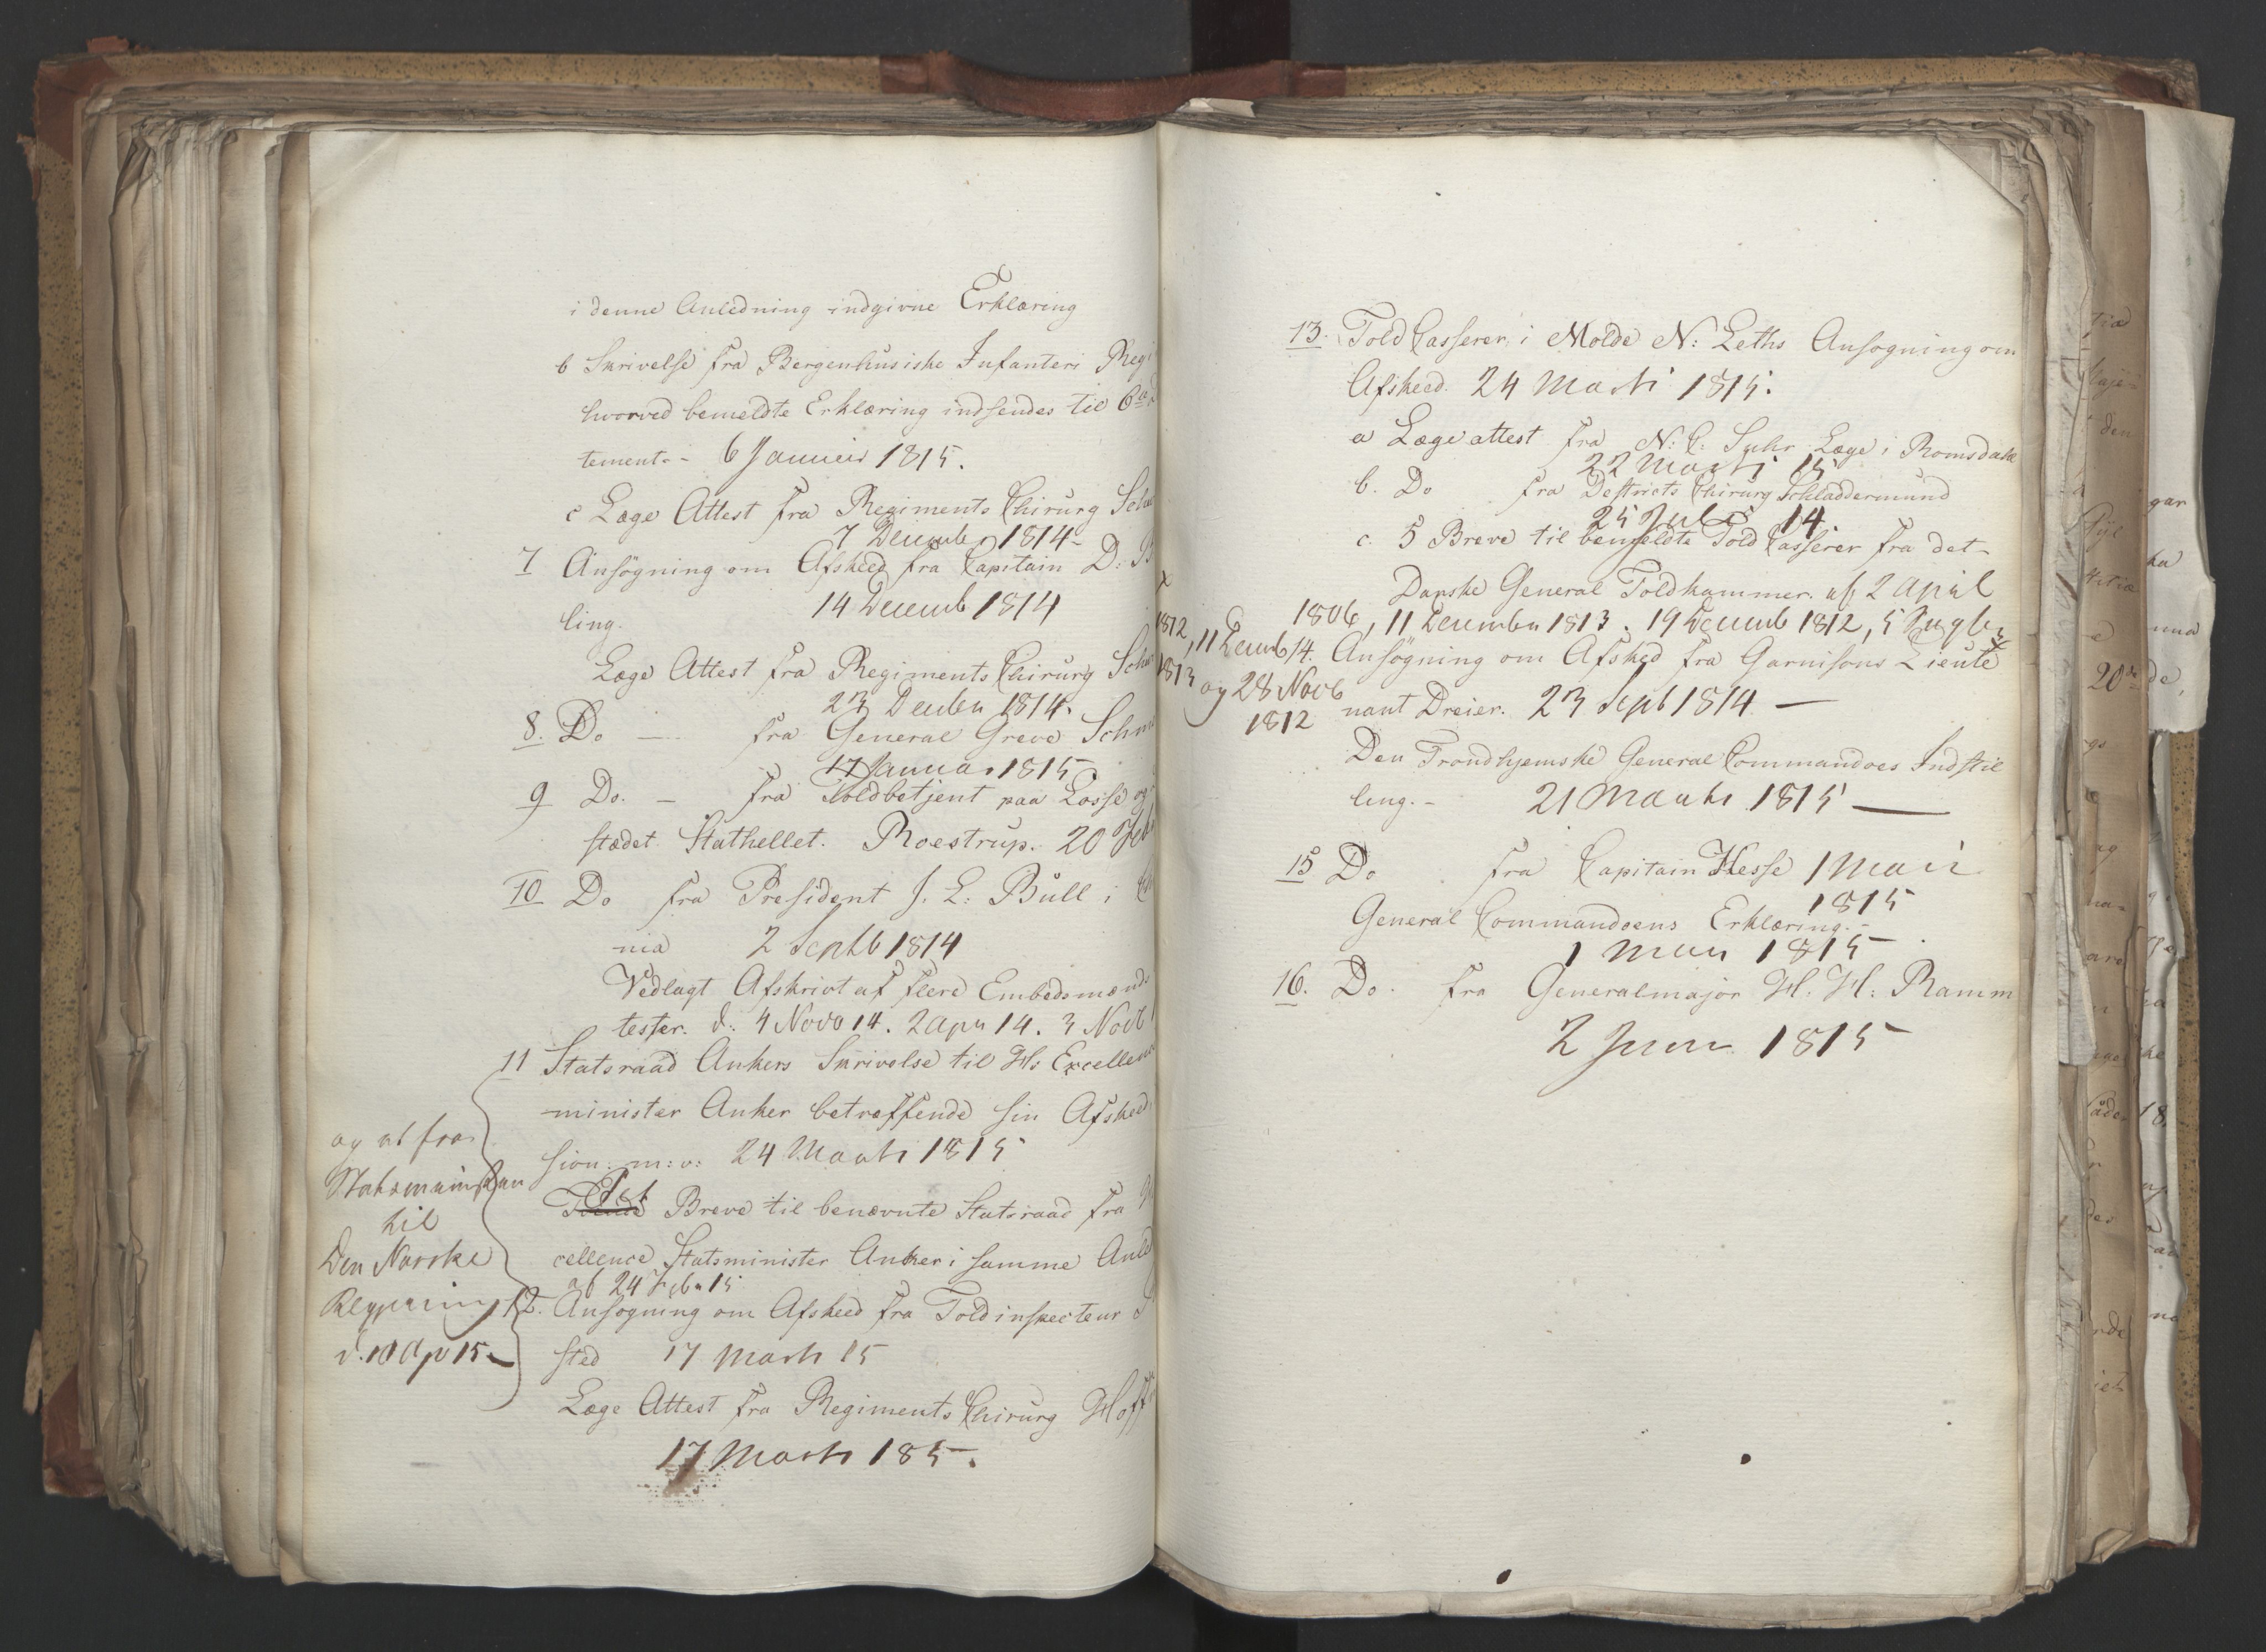 i denne Anledning indgivne Erklæring
b Skrivelse fra Bergenhusiske Infanteri Regi
hvorved bemeldte Erklæring indsendes til
tement.- 6 Januar 1815.
c Læge Attest fra Regiments Chirurg
7 December 1814-
7 Ansøgning om Afskeed fra Capitain D: B
ling. 14 Decemb 1814
Læge Attest fra Regiments Chirurg
23 Decbr 1814.
8. Do — fra General Greve Schm
17 Januar 1815
9 Do. - fra Toldbetjent paa Losse og
stædet Stathellet. Roestrup. 20 Feb
10 Do fra President J. L: Bull i
nia 2 Septb 1814
Vedlagt Afskrivt af flere Embedsmænds
tester. d: 4 Novb 14. 2 Apr 14. 3 Novb
11 Statsraad Ankers Skrivelse til Hs Excellence
minister Anker betreffende sin Afskeed
sion: m: v: 24 Marti 1815
Et Breve til benævnte Statsraad fra
cellence Statsminister Anker i samme Anled
af 24 Febr 15
og et fra
Statsministeren
til
Den Norske
Regjering
d. 10 Apr 15 —
12. Ansøgning om Afskeed fra Toldinspecteur
sted 17 Marts 15
Læge Attest fra Regiments Chirurg Hoff
17 Marts 185.
13. Told Casserer i Molde N: Leths Ansøgning om
Afskeed. 24 Marti 1815.
a Læge attest fra N: C: Suhr Læge i Romsdale
22 Marti 15
b. Do fra Destricts Chirurg Schladdermund
25 Juli 14.
c. 5 Breve til bemeldte Told Casserer fra det-
Danske General Toldkammer. af 2 April
1806, 11 December 1813. 19 Decemb 1812, 5
1812, 11 Decemb
1813 og 28 Novb
1812
14. Ansøgning om Afsked fra Garnisons Lieute
nant Dreier. 23 Sept 1814 —
Den Trondhjemske General Commandoes Indstil
ling.- 21 Marts 1815 —
15 Do fra Capitain Hesse 1 Mai
1815
General Commandoens Erklæring.-
1 Mai 1815
16. Do. fra Generalmajor H. H: Ramm
2 Juni 1815